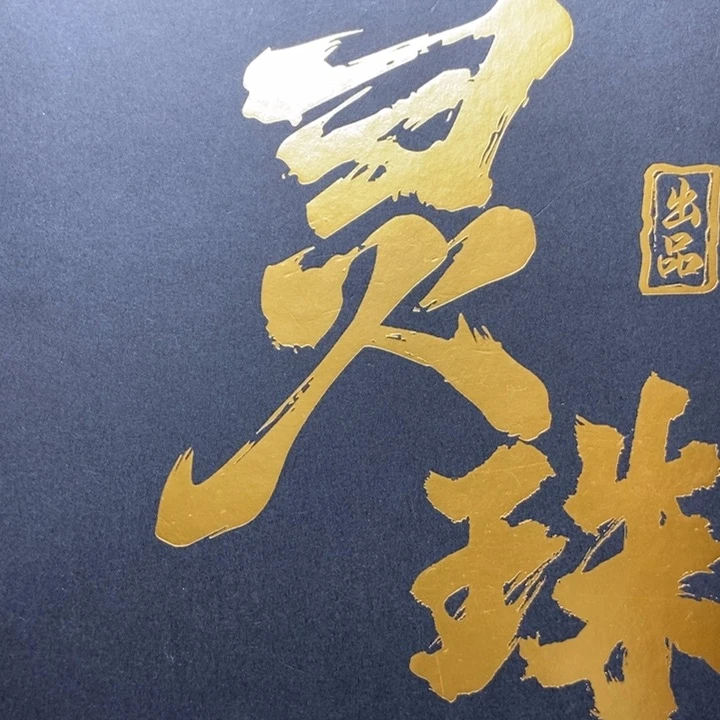 灵
珠
出
品